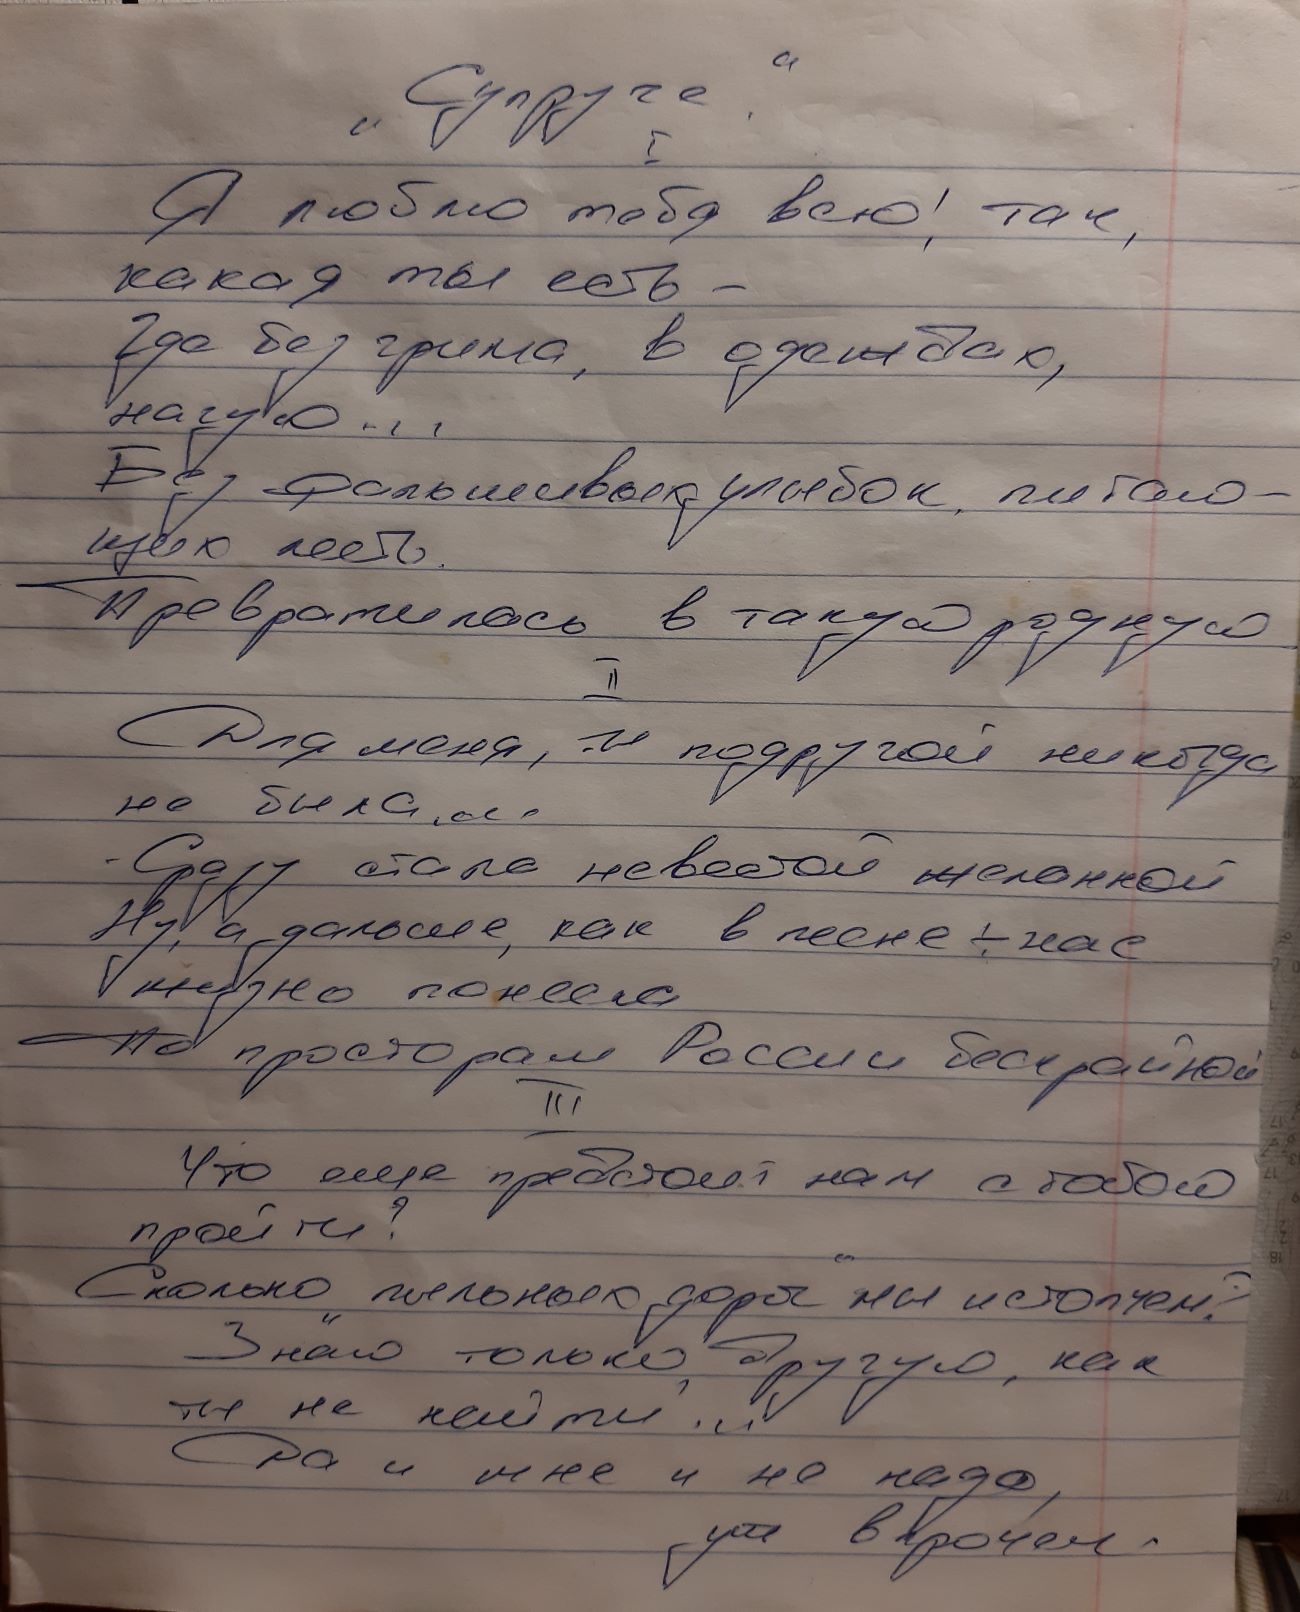 „Супруге."
I
Я люблю тебя всю! так,
какая ты есть –
Где без грима, в одеждах,
нагую...
Без фальшивых улыбок, питаю-
щих лесть.
Превратилась в такую родную
II
Для меня, ты подругой никогда
не была...
Сразу стала невестой желанной
Ну, а дальше, как в песне ÷ нас
жизнь понесла
По просторам России бескрайной
III
Что еще предстоит нам с тобою
пройти?
Сколько „пыльных дорог" мы истопчем?
Знаю только, другую, как
ты не найти!..
Да и мне и не надо,
уж впрочем.